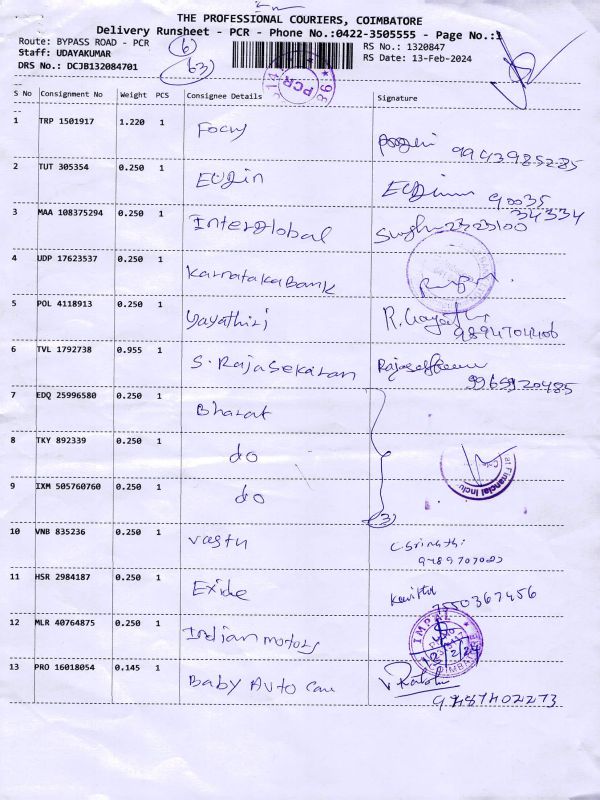 THE PROFESSIONAL COURIERS, COIMBATORE
Delivery Runsheet - PCR - Phone No.:0422-3505555 - Page No.:1
Route: BYPASS ROAD - PCR
RS No.: 1320847
Staff: UDAYAKUMAR
RS Date: 13-Feb-2024
DRS No.: DCJB132084701
6
63
PCR
S No Consignment No Weight PCS Consignee Details Signature
1 TRP 1501917 1.220 1 Focuy 9943985285
2 TUT 305354 0.250 1 Eldin 90035
34334
3 MAA 108375294 0.250 1 Interglobal 2323100
4 UDP 17623537 0.250 1 Karnataka Bank
5 POL 4118913 0.250 1 Gayathiri R. Gayathri
9894704406
6 TVL 1792738 0.955 1 S. Rajasekaran
9965920485
7 EDQ 25996580 0.250 1 Bharat
8 TKY 892339 0.250 1 do
9 IXM 505760760 0.250 1 do
3
al Financial Inclu
10 VNB 835236 0.250 1 Vastu C. Srinathi
11 HSR 2984187 0.250 1 Exide Kavitha
7550367456
12 MLR 40764875 0.250 1 Indian motors
IMPAL
COIMBATORE
13 PRO 16018054 0.145 1 Baby Auto Care
9487402273